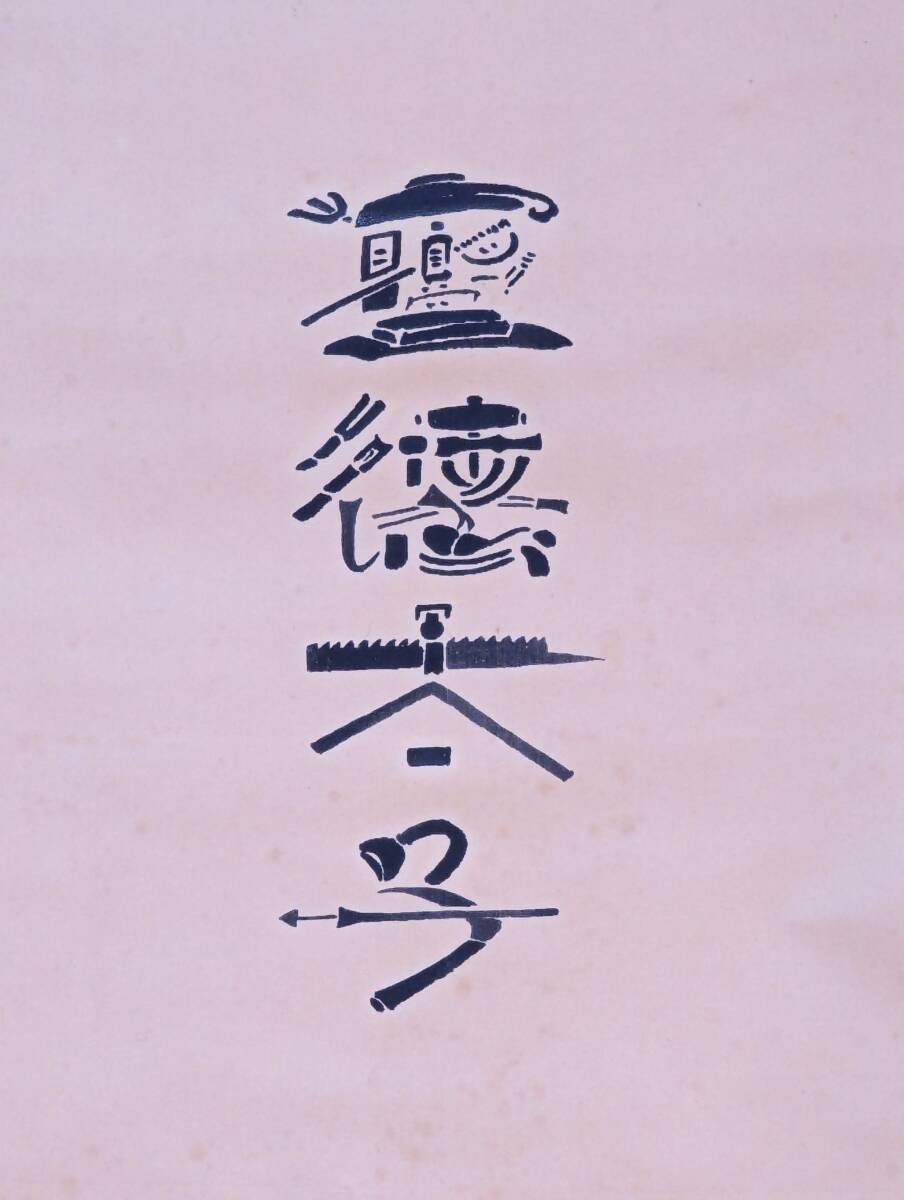 聖徳太子